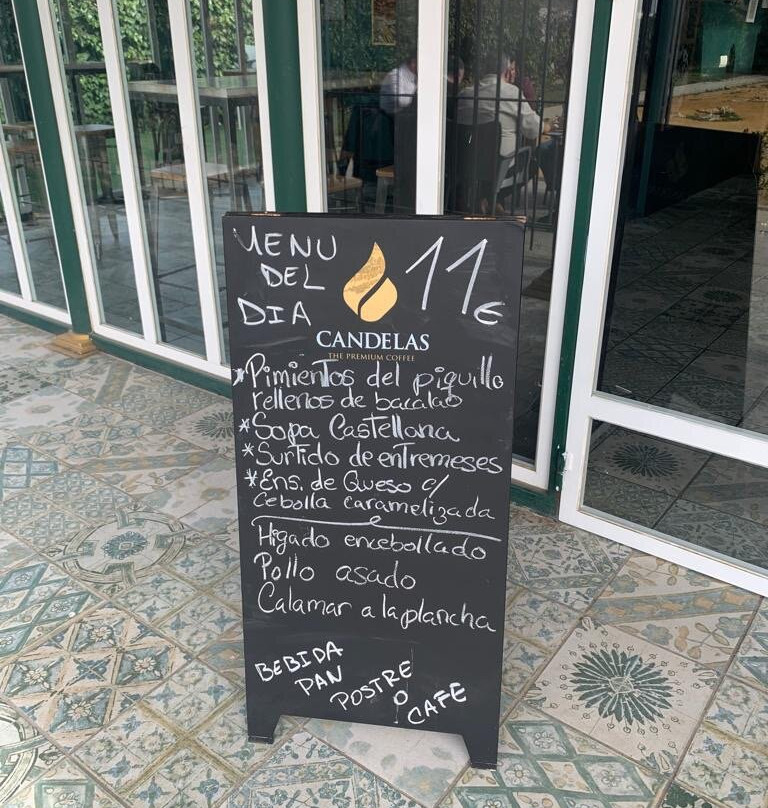 MENU
DEL
DIA
11€
CANDELAS
THE PREMIUM COFFEE
*Pimientos del piquillo
rellenos de bacalao
*Sopa Castellana
*Surtido de entremeses
*Ens. de Queso c/
cebolla caramelizada
Higado encebollado
Pollo asado
Calamar a la plancha
BEBIDA
PAN
POSTRE
O
CAFE